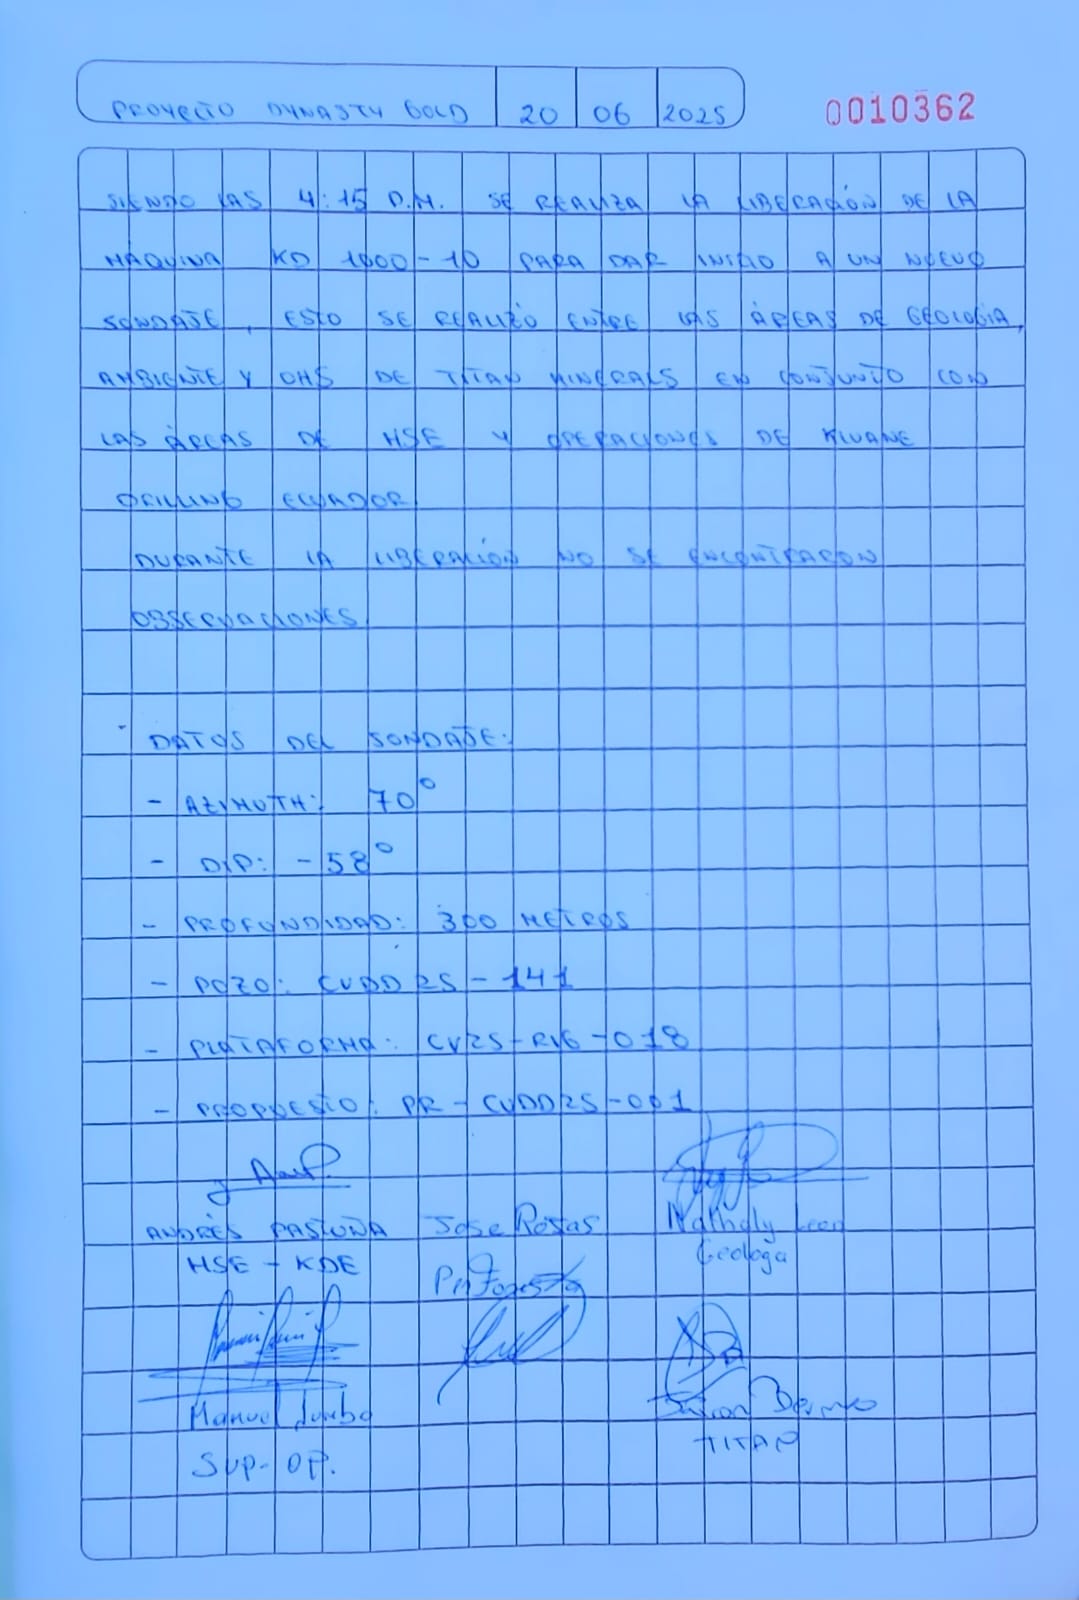 PROYECTO DYNASTY GOLD 20 06 2025 0010362
SIENDO LAS 4:15 P.M. SE REALIZA LA LIBERACIÓN DE LA
MÁQUINA KD 1000-10 PARA DAR INICIO A UN NUEVO
SONDAJE, ESTO SE REALIZÓ ENTRE LAS ÁREAS DE GEOLOGÍA,
AMBIENTE Y OHS DE TITAN MINERALS EN CONJUNTO CON
LAS ÁREAS DE HSE Y OPERACIONES DE KLUANE
DRILLING ECUADOR.
DURANTE LA LIBERACIÓN NO SE ENCONTRARON
OBSERVACIONES
DATOS DEL SONDAJE:
- AZIMUTH: 70°
- DIP: -58°
- PROFUNDIDAD: 300 METROS
- POZO: CVDD25-141
- PLATAFORMA: CV25-RVG-018
- PROPUESTO: PR-CVDD25-001
ANDRÉS PASTUÑA Jose Rojas Nathaly Leon
HSE - KDE Geologa
Manuel Jumbo
SUP-OP. TITAN